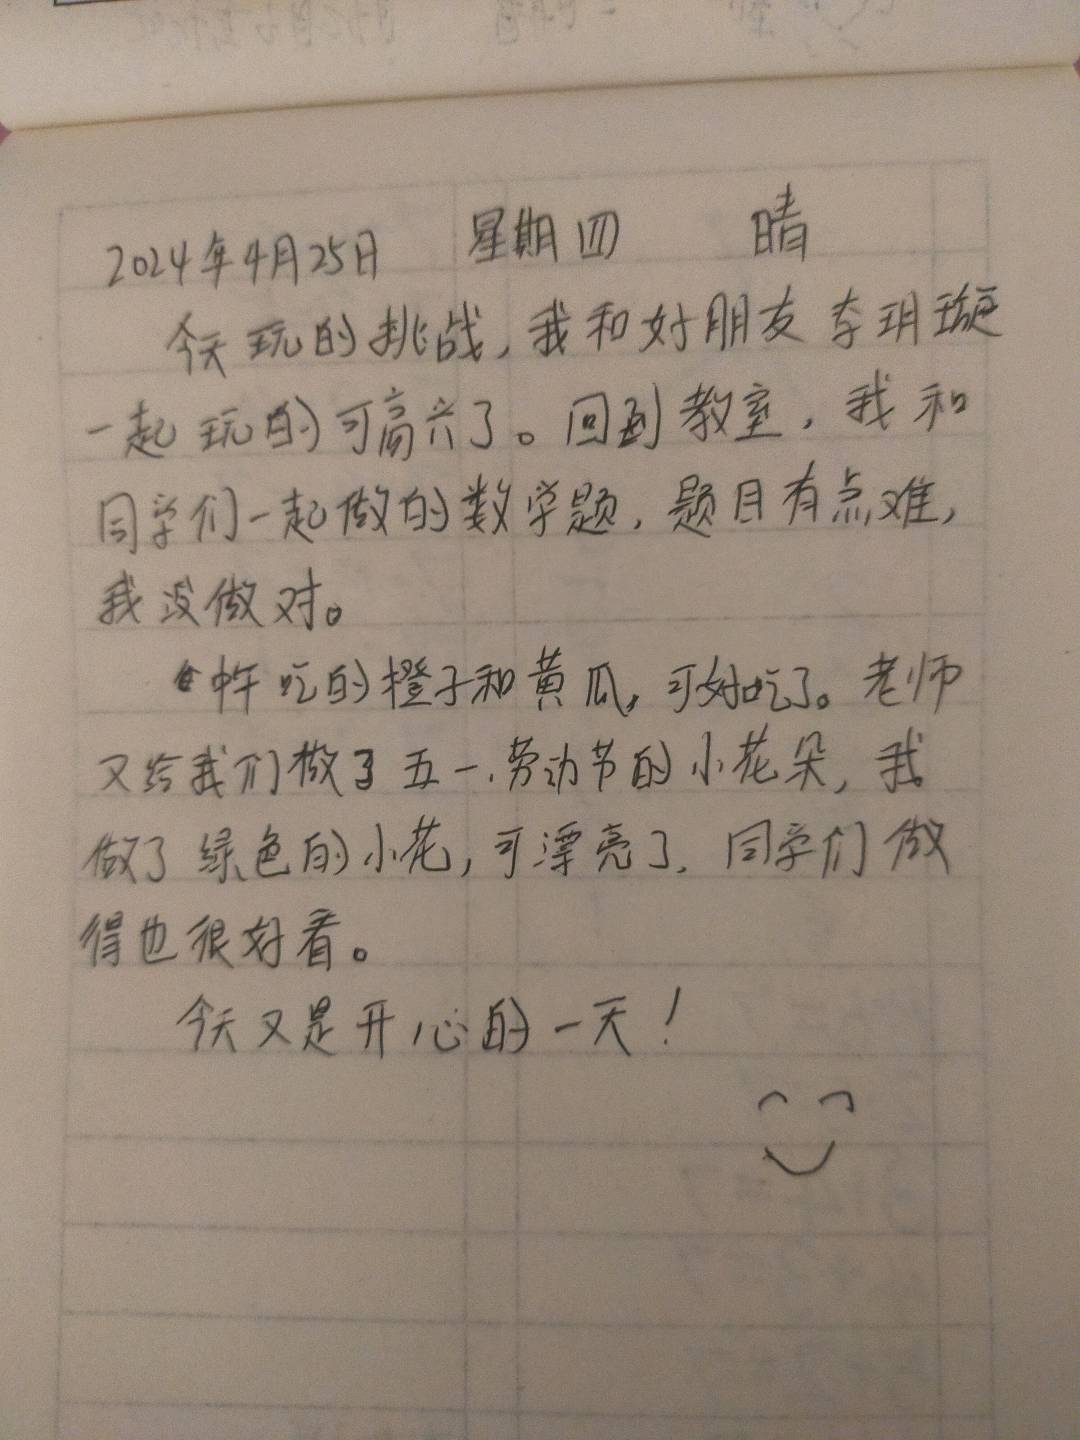 2024年4月25日 星期四 晴
今天玩的挑战,我和好朋友李玥璇
一起玩的可高兴了。回到教室,我和
同学们一起做的数学题,题目有点难,
我没做对。
中午吃的橙子和黄瓜,可好吃了。老师
又给我们做了五一劳动节的小花朵,我
做了绿色的小花,可漂亮了,同学们做
得也很好看。
今天又是开心的一天!